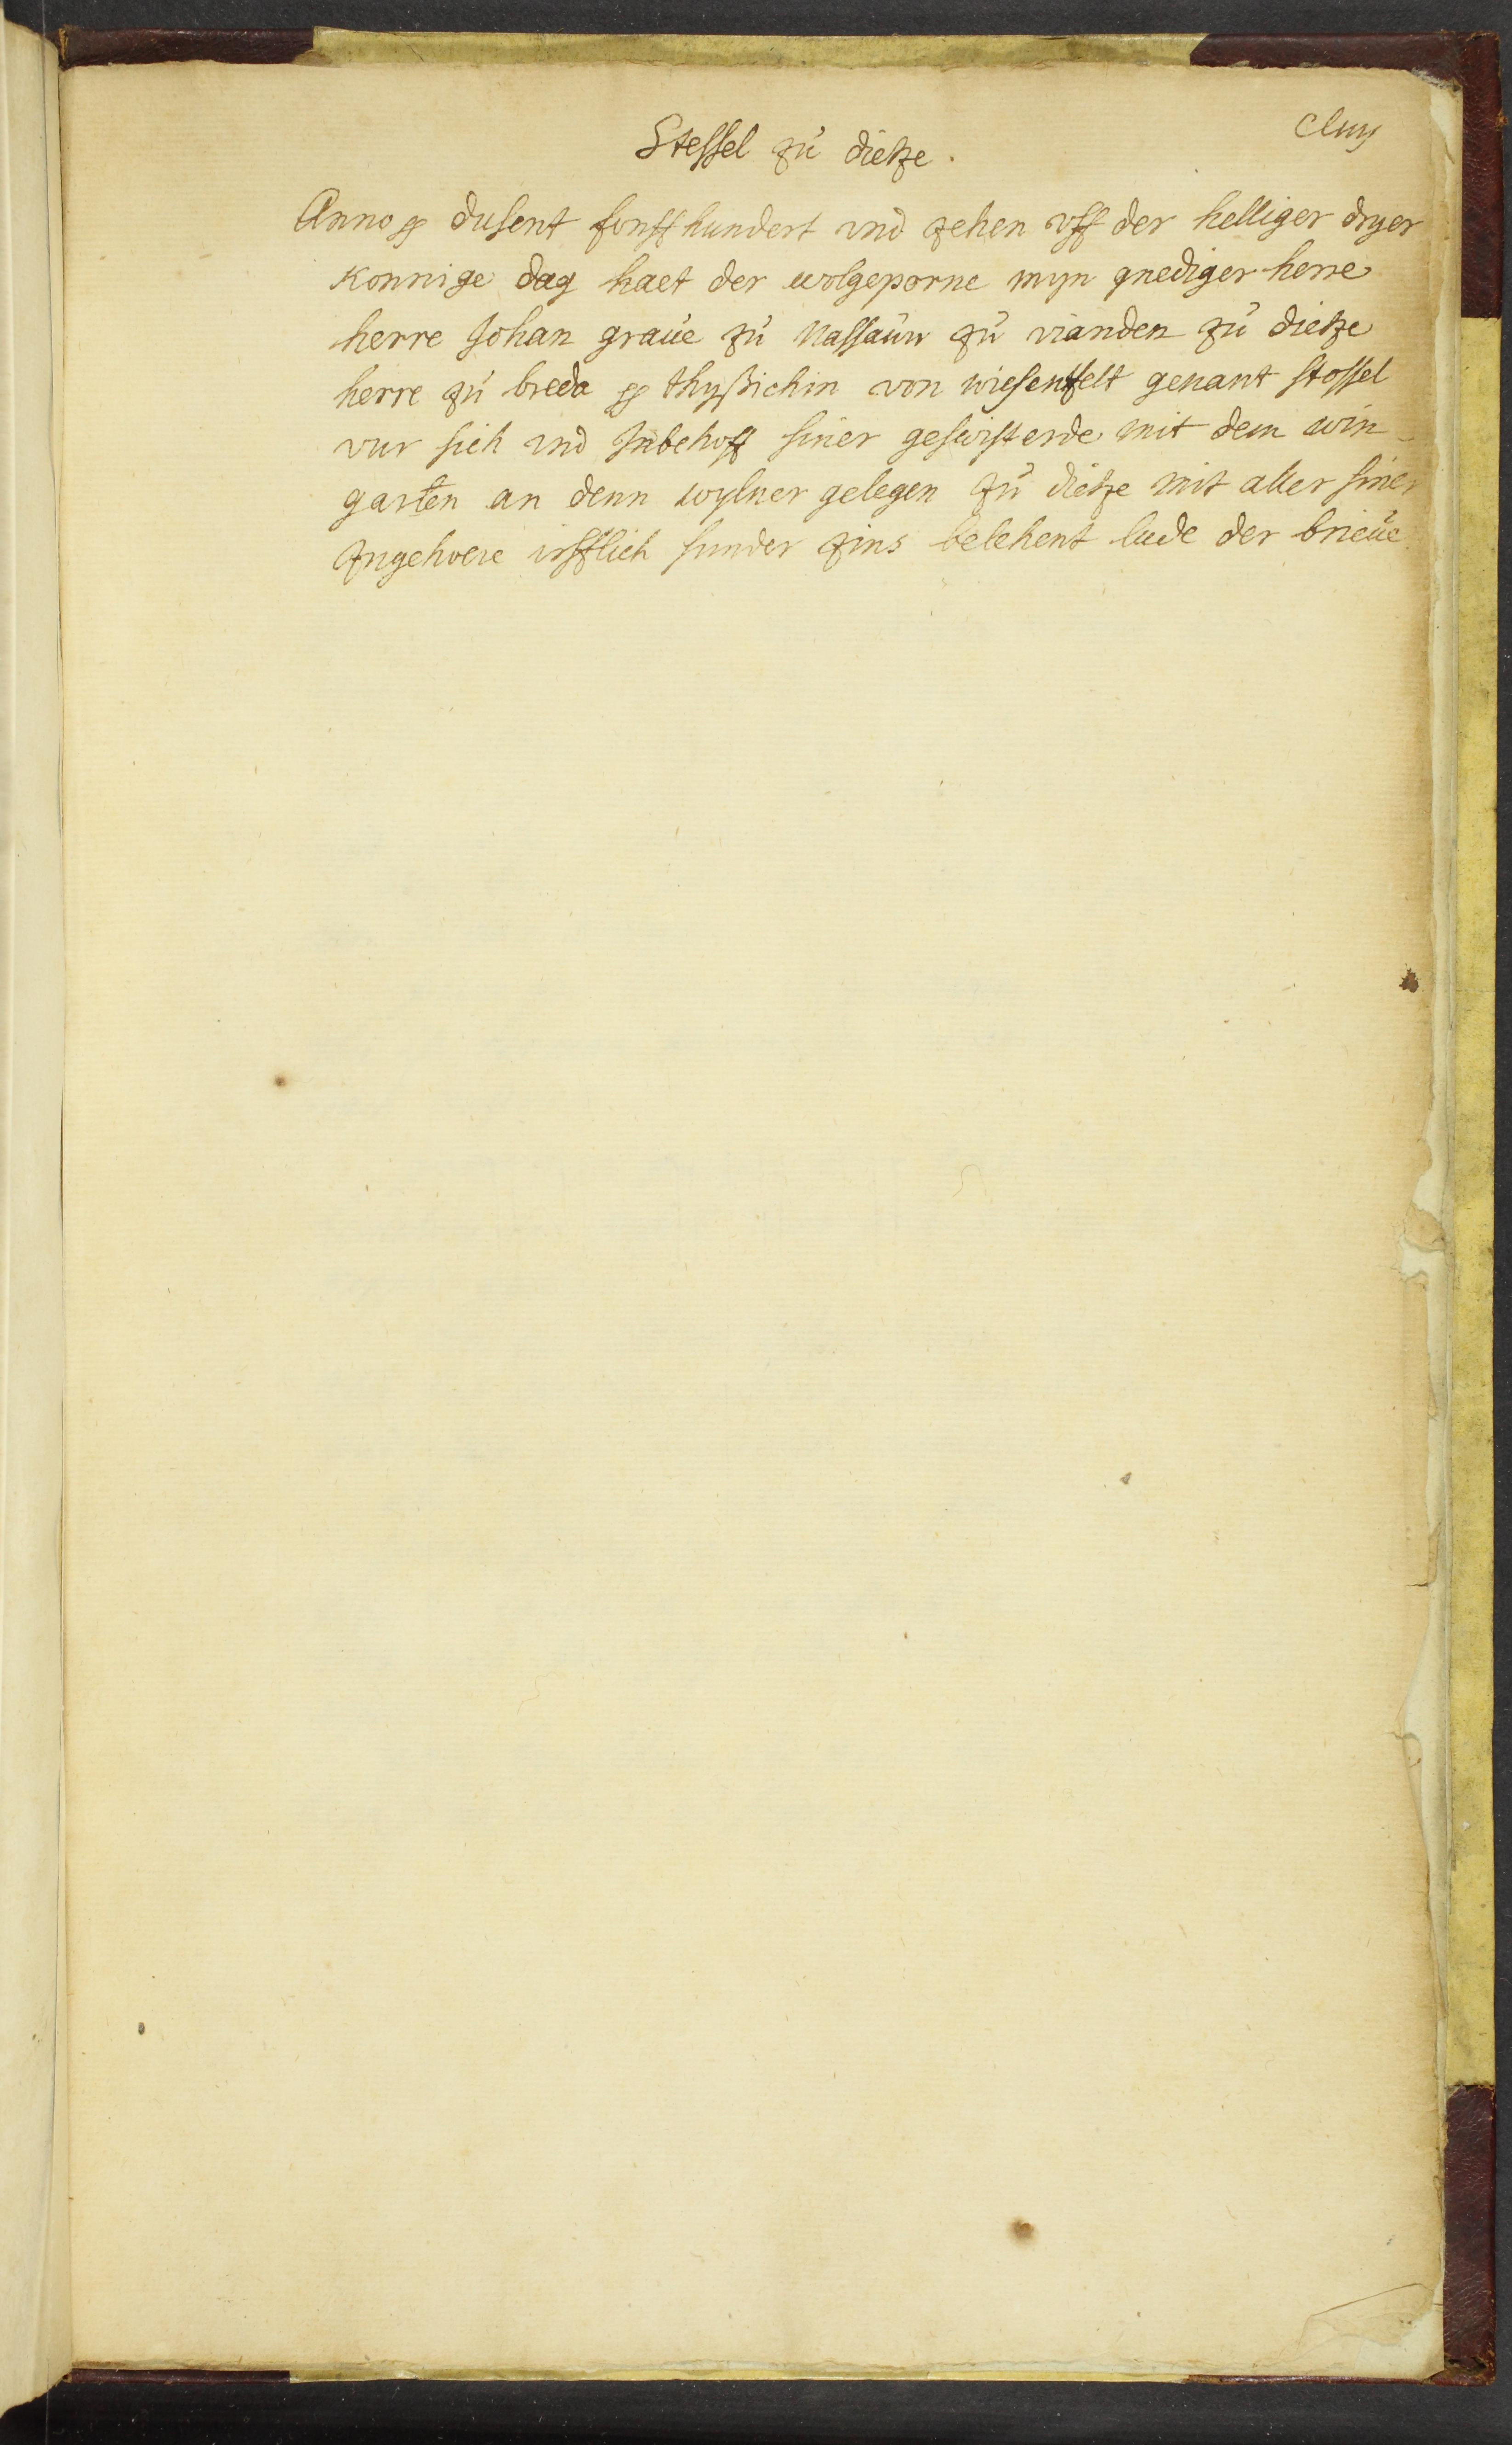 Stessel zů dietze.
Anno etc dusent fonffhundert vnd zehen vff der helliger dryer
konnige dag haet der wolgeporne myn gnediger herre
herre Johan graue zů Nassauw zů vianden zů dietze
herre zů breda etc thyßichin von wiesentfelt genant stossel
vur sich vnd Inbehoff siner geswisterde mit dem win-
garten an denn wylner gelegen zů dietze mit aller siner
zugehore erfflich sunder zins belehent lude der brieue